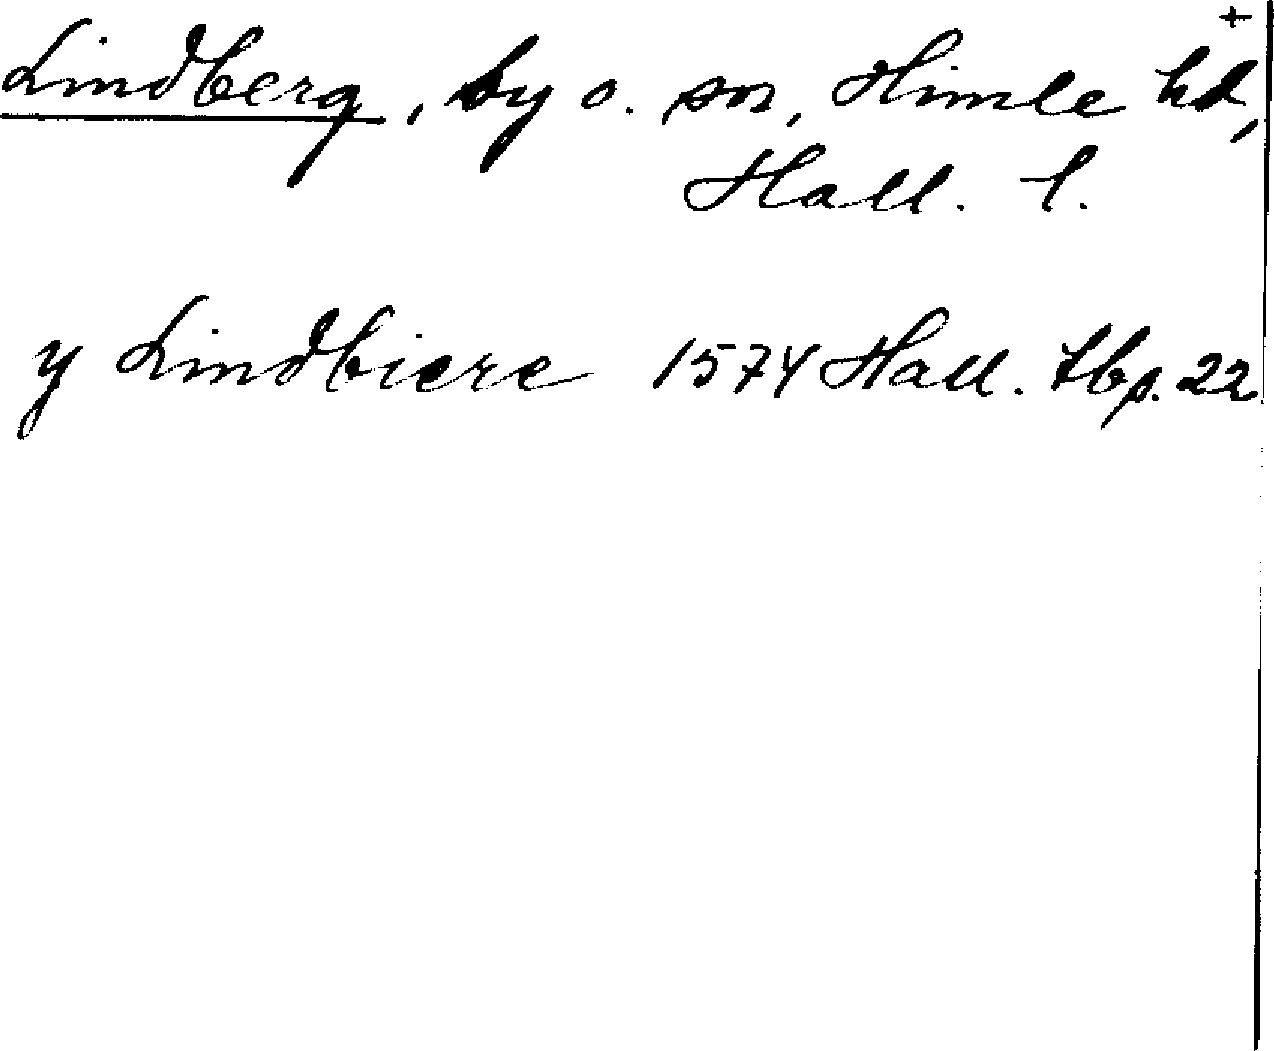 +
Lindberg, by o. sn, Himle hd,
Hall. l.
y Lindbiere 1574 Hall. tbp. 22